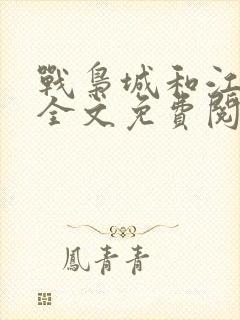 戰梟城和江
全文免費閱
鳳青青